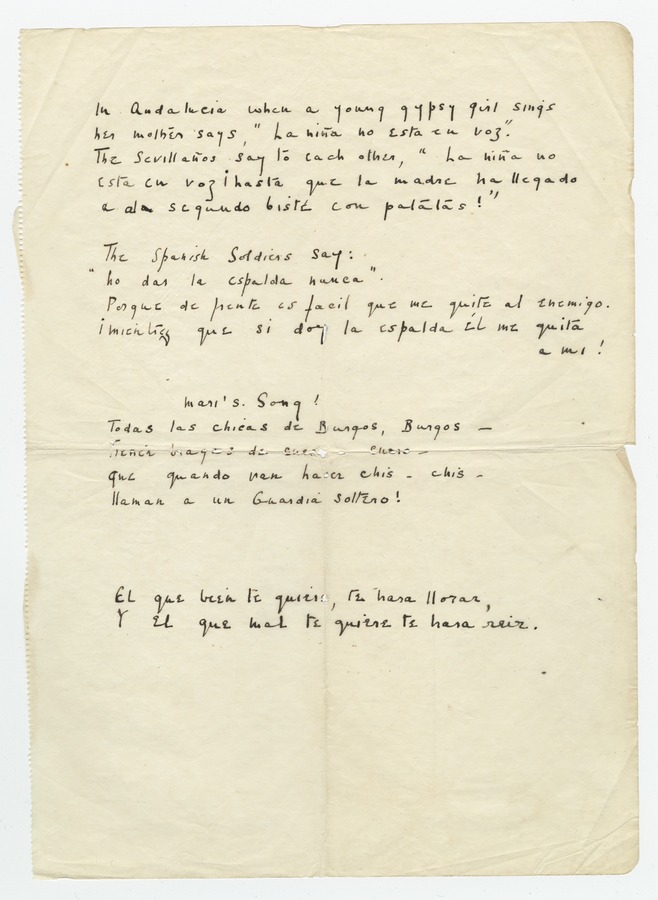 In Andalucia when a young gypsy girl sings
her mother says, "La niña no esta en voz".
The Sevillaños say to each other, " La niña no
esta en voz ¡hasta que la madre ha llegado
a al segundo bisté con patatas!"
The Spanish Soldiers say:
"no das la espalda nunca".
Porque de frente es facil que me quite al enemigo.
¡mientras que si doy la espalda Él me quita
a mi!
Mari's. Song!
Todas las chicas de Burgos, Burgos —
de cuero —
que quando van hacer chis - chis -
llaman a un Guardia soltero!
El que bien te quiere, te hara llorar,
Y El que mal te quiere te hara reir.